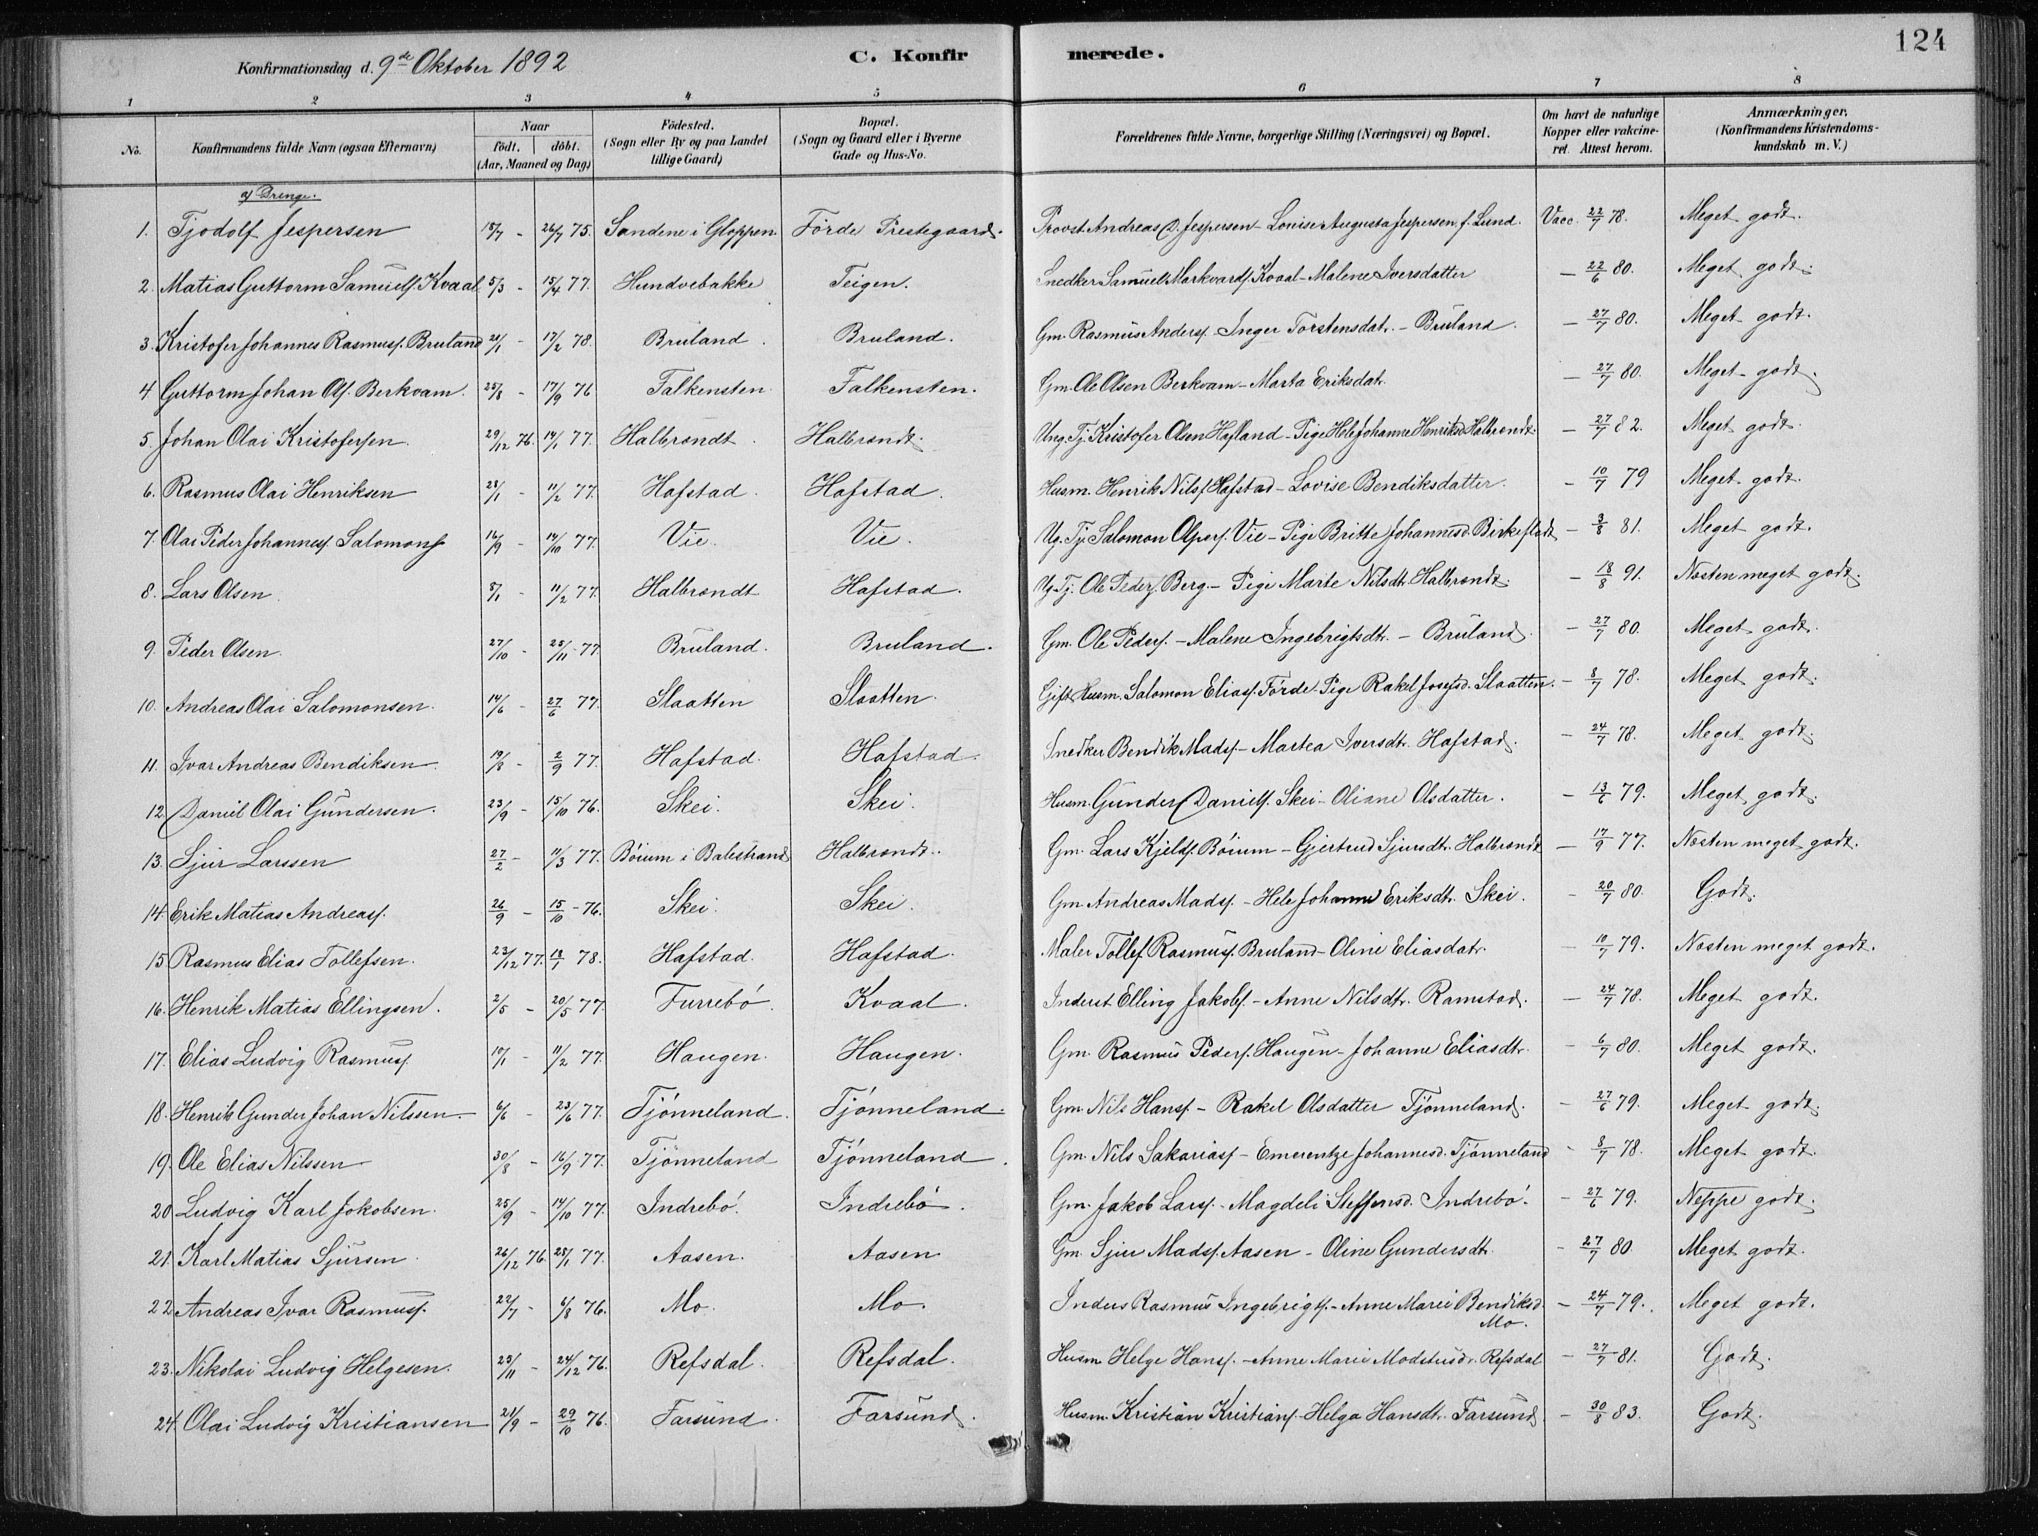 124
Konfirmationsdag d. 9de Oktober 1892 C. Konfirmerede.
1 2 3 4 5 6 7 8
No. Konfirmandens fulde Navn (ogsaa Efternavn) Naar födt. döbt. (Aar, Maaned og Dag) Födested. (Sogn eller By og paa Landet tillige Gaard) Bopæl. (Sogn og Gaard eller i Byerne Gade og Hus-No. Forældrenes fulde Navne, borgerlige Stilling (Næringsvei) og Bopæl. Om havt de naturlige Kopper eller vakcineret. Attest herom. Anmærkninger. (Konfirmandens Kristendomskundskab m. V.)
a) Drenge.
1. Tjodolf Jespersen 18/7 - 26/7 75. Sandene i Gloppen Förde Prestegaard. Provst Andreas D. Jespersen - Louise Augusta Jespersen f. Lund. Vacc. 22/7 78. Meget godt.
2. Matias Guttorm Samuelf. Kvaal 5/3 - 15/4 77. Hundvebakke Teigen. Snedker Samuel Markvardf. Kvaal - Malene Iversdatter - 22/6 80. Meget godt.
3. Kristofer Johannes Rasmusf. Bruland 21/1 - 17/2 78. Bruland. Bruland. Gm. Rasmus Andersf. - Inger Torstensdatr. - Bruland. - 27/7 80. Meget godt.
4 Guttorm Johan Olf. Berkvam. 25/8 - 17/9 76 Falkensten. Falkensten. Gm. Ole Olsen Berkvam - Marta Eriksdatr. - 27/7 80. Meget godt.
5. Johan Olai Kristofersen. 29/12 76. 14/1 77. Halbrendt. Halbrendt. Ung. Tj. Kristofer Olsen Hafland - Pige Hele Johanne Henriksd. Halbrendt. - 27/7 82. Meget godt.
6. Rasmus Olai Henriksen 28/1 - 11/2 77. Hafstad. Hafstad. Husm. Henrik Nilsf. Hafstad - Lovise Bendiksdatter. - 10/7 79 Meget godt.
7. Olai Peder Johannesf. Salomonf 16/9 - 14/10 77. Vie. Vie. Ug. Tj. Salomon Vie - Pige Britte Johannesd. - 3/8 81. Meget godt.
8. Lars Olsen. 8/1 - 11/2 77. Halbrendt Hafstad. Ug. Tj. Ole Pederf. Berg. - Pige Marte Nilsdt. Halbrendt. - 18/8 91. Næsten meget godt.
9. Peder Olsen. 27/10 - 25/11 77. Bruland. Bruland. Gm. Ole Pedersf. - Malene Ingebrigtsdt. - Bruland. - 27/7 80. Meget godt.
10. Andreas Olai Salomonsen. 14/6 - 27/6 77. Slaatten Slaatten. Gift Husm. Salomon Eliasf. Förde. Pige Rakel Josefsd. Slaatten. - 8/7 78. Meget godt.
11. Ivar Andreas Bendiksen. 19/8 - 2/9 77. Hafstad. Hafstad. Snedker Bendik Madsf. - Martea Iversdt. Hafstad. - 24/7 78. Meget godt.
12. Daniel Olai Gundersen. 23/9 - 15/10 76. Skei. Skei. Husm. Gunder Danielf. Skei - Oliane Olsdatter. - 13/6 79. Meget godt.
13. Sjur Larssen 27/2 - 11/3 77. Böium i Balestrand Halbrendt. Gm. Lars Kjeldf. Böium - Gjertrud Sjursdt. Halbrendt - 17/9 77. Næsten meget godt.
14. Erik Matias Andreasf. 26/9 - 15/10 - 76. Skei. Skei. Gm. Andreas Madsf. - Hele Johanne Eriksdt. Skei. - 20/7 80 Godt.
15. Rasmus Elias Tollefsen. 23/12 77. 13/1 78. Hafstad. Hafstad. Maler Tollef Rasmusf. Bruland - Oline Eliasdatr. - 10/7 79. Næsten meget godt.
16. Henrik Matias Ellingsen. 2/5 - 20/5 77. Furrebö. Kvaal. Inderst Elling Jakobf. - Anne Nilsdt. Ramstad. - 24/7 78. Meget godt.
17. Elias Ludvig Rasmusf. 10/1 - 11/2 77. Haugen. Haugen. Gm. Rasmus Pedersf. Haugen - Johanne Eliasdt. - 6/7 80. Meget godt.
18. Henrik Gunder Johan Nilssen. 6/6 - 23/6 77. Tjönneland. Tjönneland. Gm. Nils Hansf. - Rakel Olsdatter Tjönneland. - 27/6 79. Meget godt.
19. Ole Elias Nilssen 30/8 - 16/9 77. Tjönneland Tjönneland. Gm. Nils Sakariasf. - Emerentze Johannesd. Tjönneland - 8/7 78. Meget godt.
20 Ludvig Karl Jakobsen. 25/9 - 14/10 77. Indrebö. Indrebö. Gm. Jakob Larsf. - Magdeli Steffensd. Indrebö. - 27/6 79. Neppe godt.
21. Karl Matias Sjursen. 26/12 76. 28/1 77. Aasen. Aasen Gm. Sjur Madsf. Aasen - Oline Gundersdt. - 27/7 80 Meget godt.
22 Andreas Ivar Rasmusf. 22/7 - 6/8 76. Mo. Mo. Inders Rasmus Ingebrigtf. - Anne Marie Bendiksd. Mo. - 24/7 79. Meget godt.
23. Nikolai Ludvig Helgesen. 23/11 - 24/12 76. Refsdal. Refsdal. Husm. Helge Hansf. - Anne Marie Modstusdr. Refsdal - 27/7 81. Godt.
24. Olai Ludvig Kristiansen 21/9 - 29/10 76. Farsund. Farsund. Husm. Kristian Kristianf. - Helga Hansdt. Farsund. - 30/8 83. Godt.